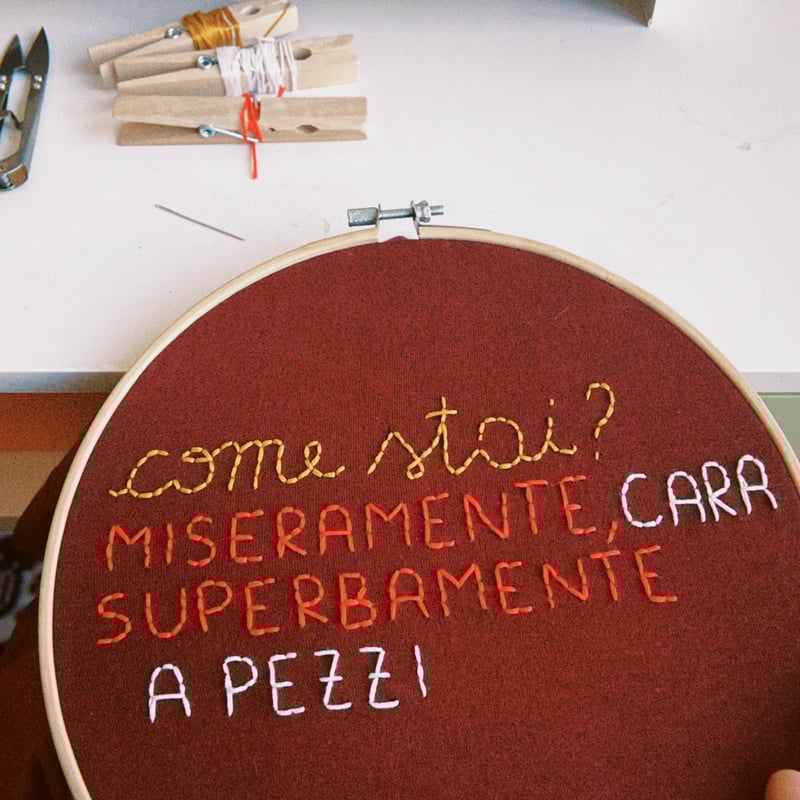 come stai?
MISERAMENTE, CARA
SUPERBAMENTE
A PEZZI